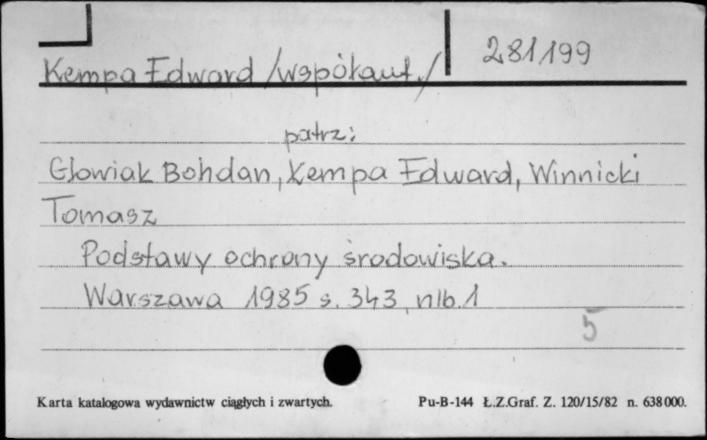 281199
Kempa Edward /współaut./
patrz:
Głowiak Bohdan, Kempa Edward, Winnicki
Tomasz
Podstawy ochrony środowiska.
Warszawa 1985 s. 343, nlb. 1
5
Karta katalogowa wydawnictw ciągłych i zwartych. Pu-B-144 Ł.Z.Graf. Z. 120/15/82 n. 638000.